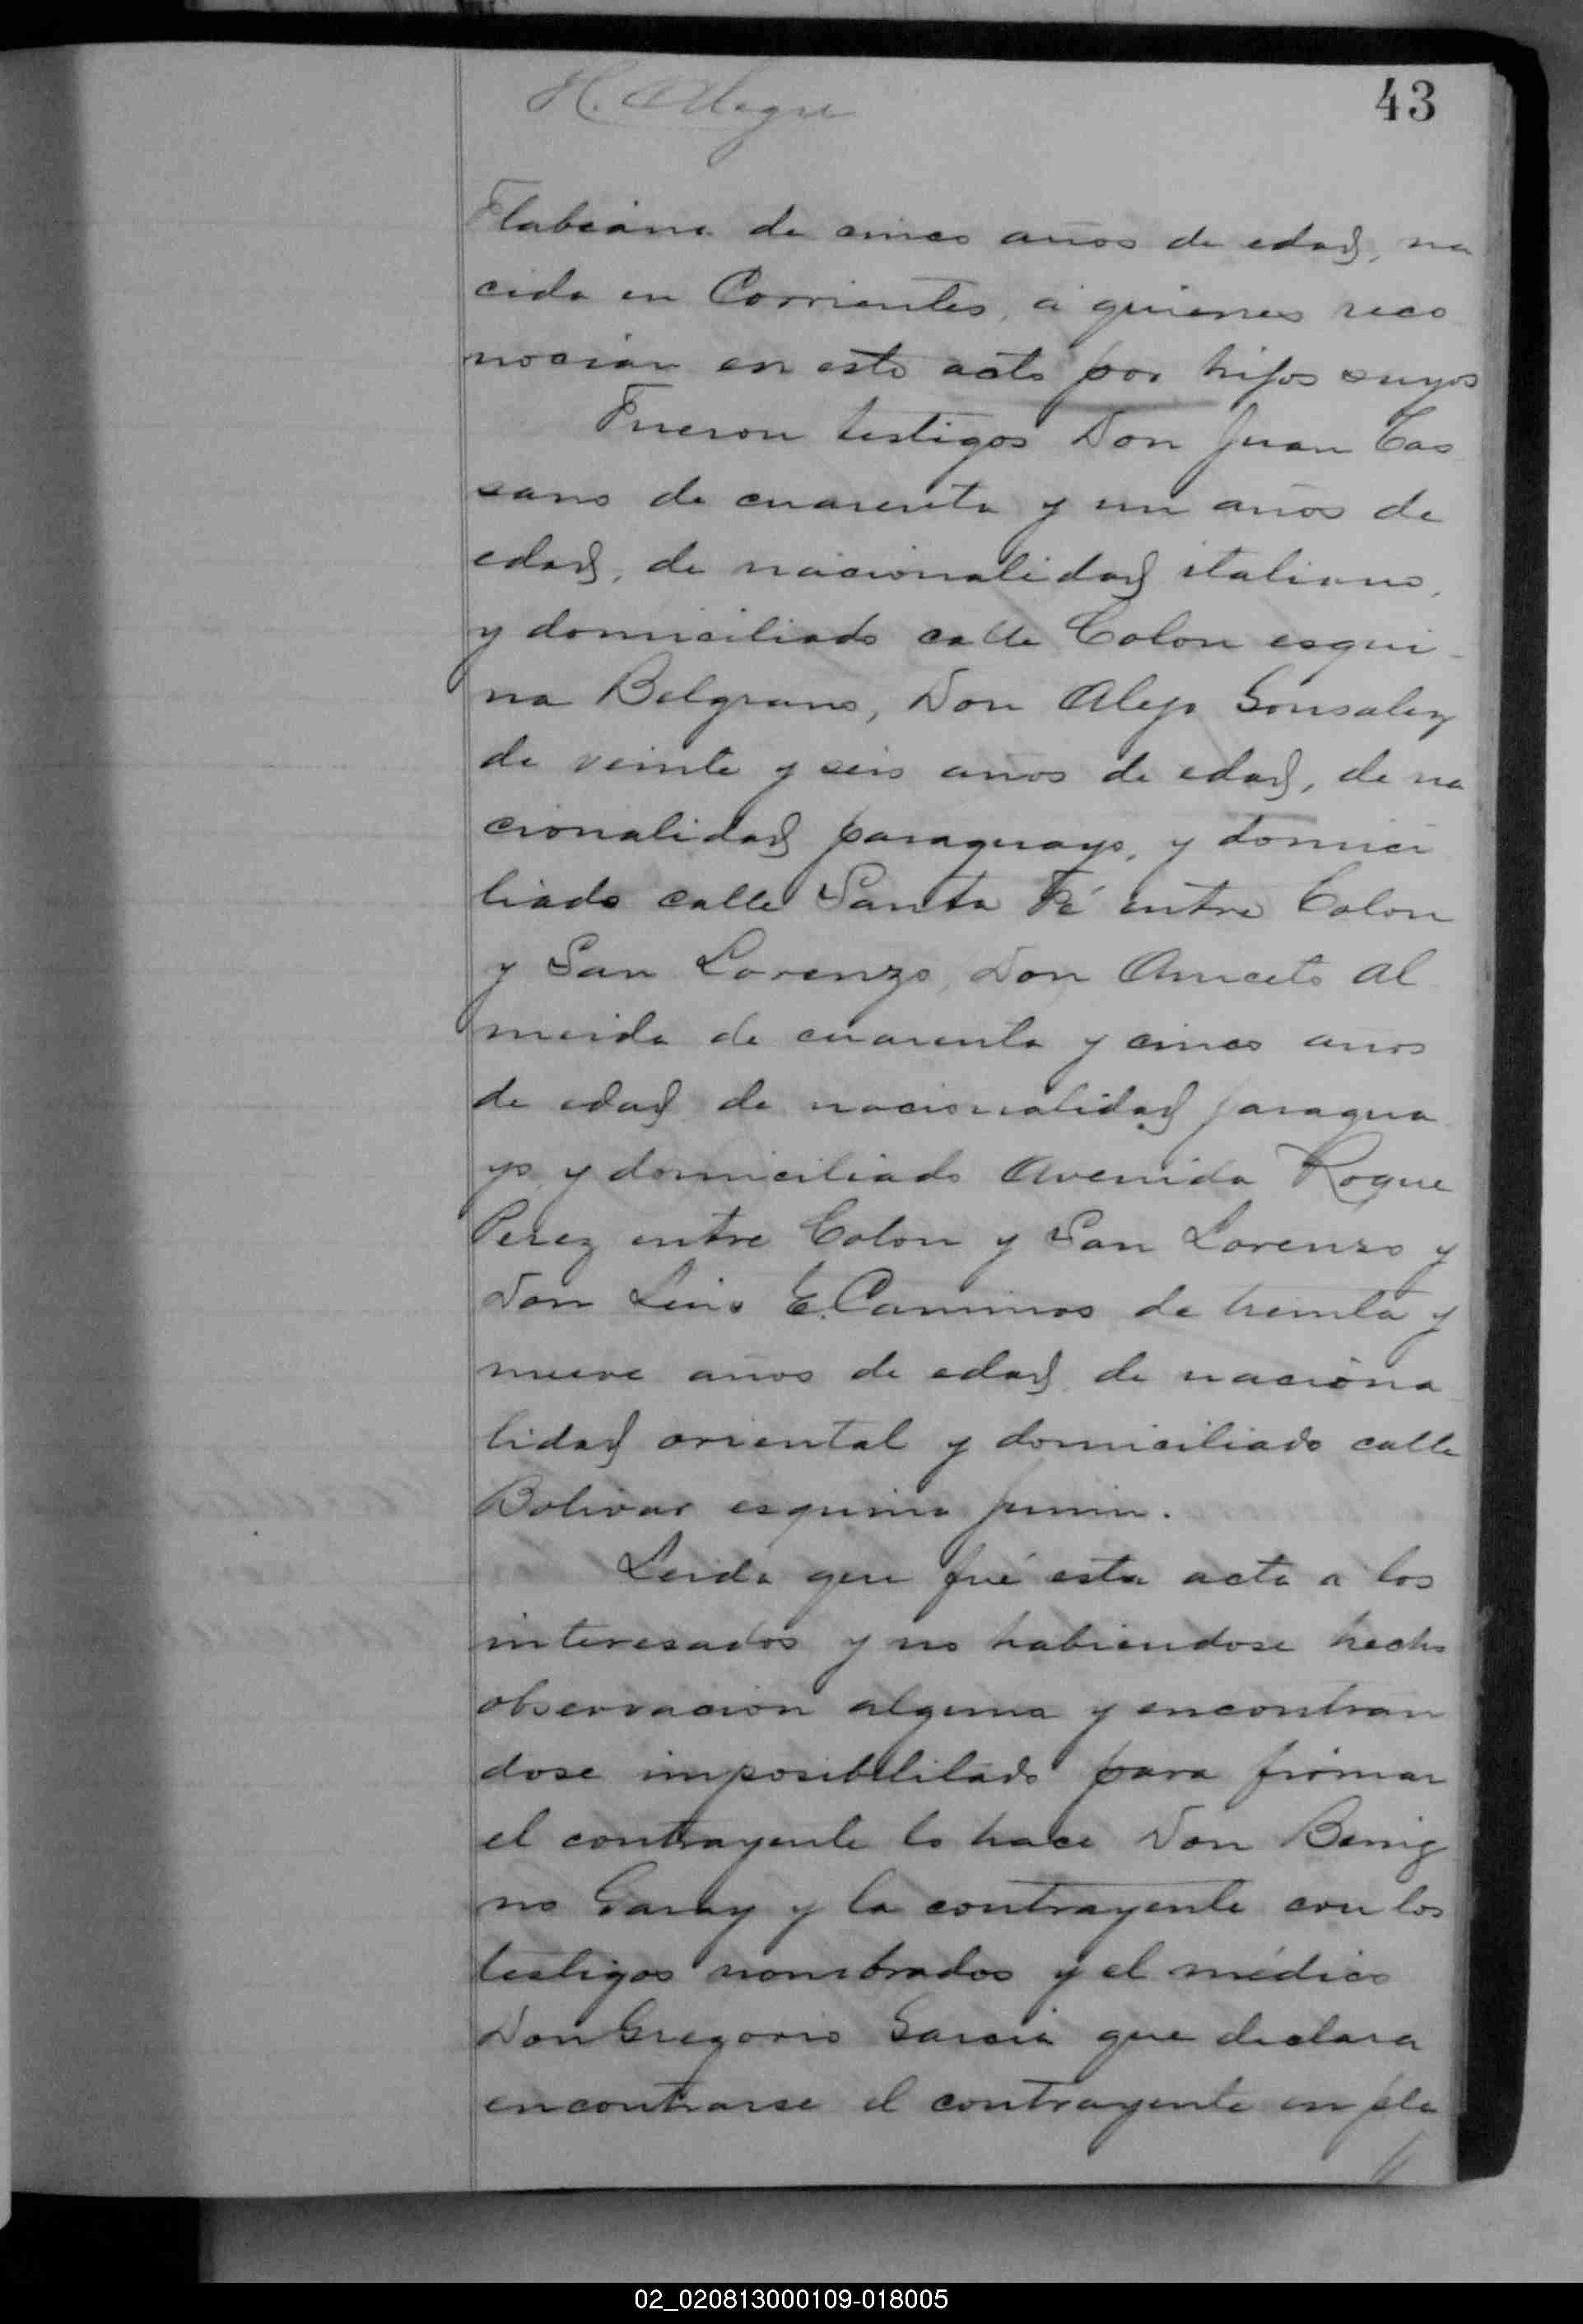 H. Alegre
43
Flabiana de cinco años de edad, na
cida en Corrientes, a quienes reco
nocian en este acto por hijos suyos
Fueron testigos Don Juan Cas
sano de cuarenta y un años de
edad, de nacionalidad italiano,
y domiciliado calle Colon esqui-
na Belgrano, Don Alejo Gonsalez
de veinte y seis años de edad, de na
cionalidad paraguayo, y domici
liado calle Santa Fé entre Colon
y San Lorenzo, Don Aniceto Al
meida de cuarenta y cinco años
de edad de nacionalidad paragua
yo y domiciliado Avenida Roque
Perez entre Colon y San Lorenzo y
Don Luis E. Caminos de treinta y
nueve años de edad, de naciona
lidad oriental y domiciliado calle
Bolivar esquina Junin.
Leida que fué esta acta a los
interesados y no habiendose hecho
observacion alguna y encontran
dose imposibilitado para firmar
el contrayente lo hace Don Benig
no Garay y la contrayente con los
testigos nombrados y el médico
Don Gregorio Garcia que declara
encontrarse el contrayente en ple
02_020813000109-018005